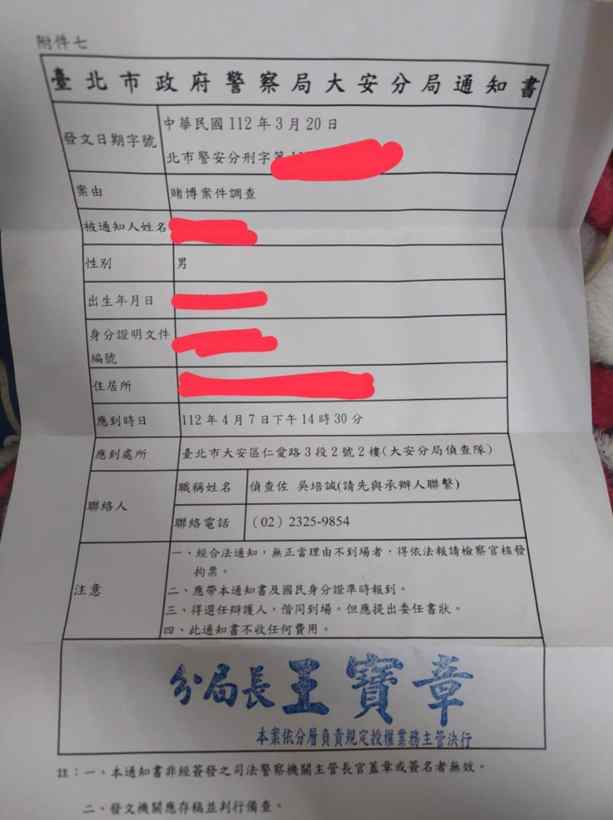 附件七
臺北市政府警察局大安分局通知書
發文日期字號
中華民國 112 年 3 月 20 日
北市警安分刑字第
案由
賭博案件調查
被通知人姓名
性別
男
出生年月日
身分證明文件
編號
住居所
應到時日
112 年 4 月 7 日下午 14 時 30 分
應到處所
臺北市大安區仁愛路 3 段 2 號 2 樓(大安分局偵查隊)
聯絡人
職稱姓名
偵查佐 吳培誠(請先與承辦人聯繫)
聯絡電話
(02)2325-9854
注意
一、經合法通知,無正當理由不到場者,得依法報請檢察官核發
拘票。
二、應帶本通知書及國民身分證準時報到。
三、得選任辯護人,偕同到場。但應提出委任書狀。
四、此通知書不收任何費用。
分局長王寶章
本案依分層負責規定授權業務主管決行
註:一、本通知書非經簽發之司法警察機關主管長官蓋章或簽名者無效。
二、發文機關應存稿並判行備查。